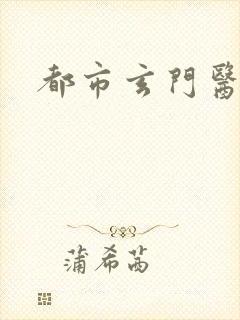 都市玄門醫
蒲希茜